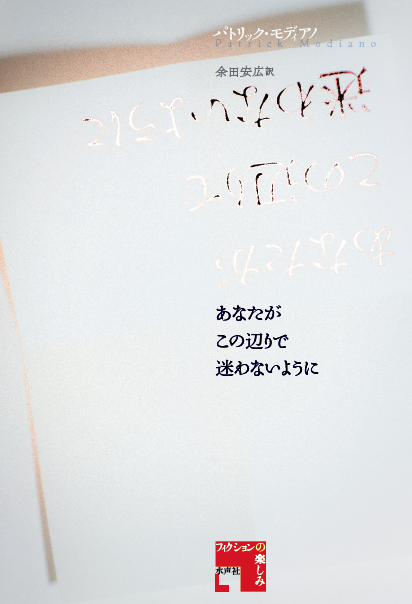 パトリック・モディアノ
Patrick Modiano
余田安広 訳
迷わないように
この辺りで
あなたが
あなたが
この辺りで
迷わないように
フィクションの楽しみ
水声社